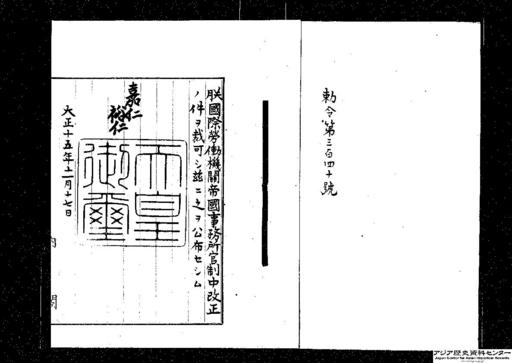 勅令第三百四十號
朕國際勞働機關帝國事務所官制中改正
ノ件ヲ裁可シ茲ニ之ヲ公布セシム
嘉仁
裕仁
天皇御璽
大正十五年十一月十七日
内閣
アジア歴史資料センター
Japan Center for Asian Historical Records